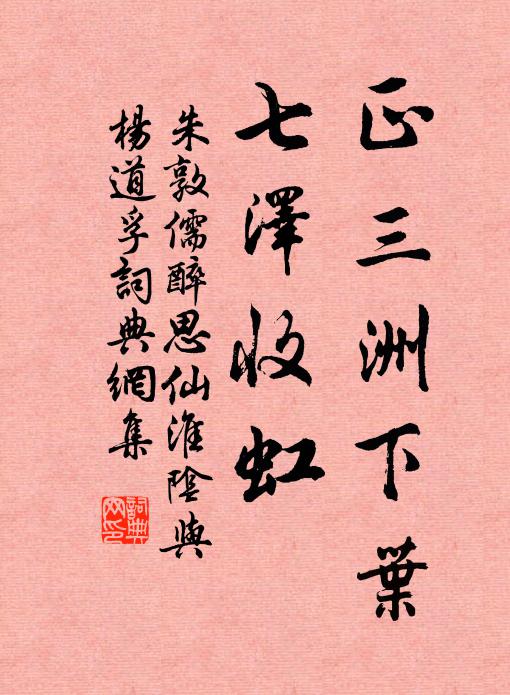 正三洲下葉
七澤收虹
朱敦儒醉思仙淮陰與
楊道孚詞典網集
詞典
网印